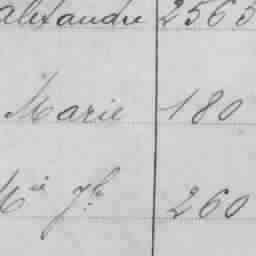 alexandre 2565
Marie 180
Mie Jh 260